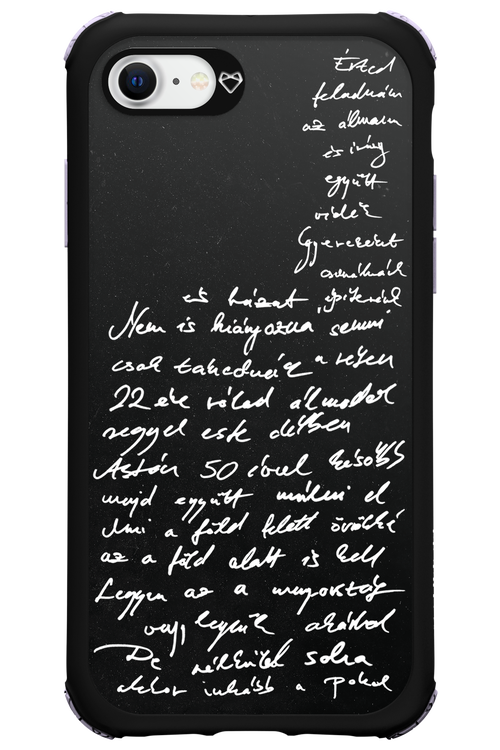 Érted
feladnám
az álmaim
és így
együtt
Gyerekeket
csinálnánk
és házat építenék
Nem is hiányozna semmi
csak
22 éve rólad álmodok
reggel este délben
Aztán 50 évvel később
majd együtt múlni el
Ami a föld felett örökké
az a föld alatt is kell
Legyen az a mennyország
vagy legyünk akárhol
De nélküled soha
akkor inkább a Pokol